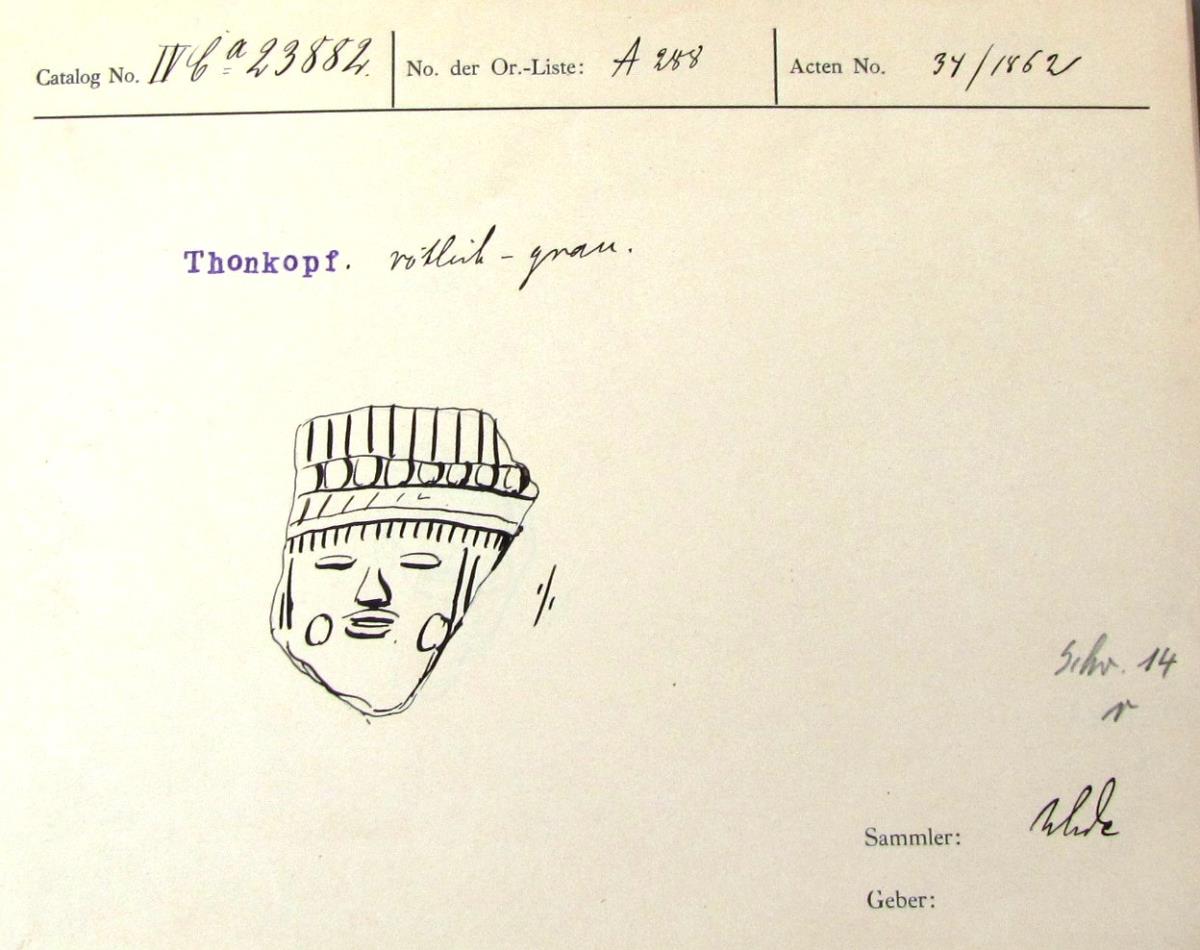 Catalog No. IV Ca 23882. No. der Or.-Liste: A 288 Acten No. 34/1862
Thonkopf. rötlich-grau.
1/1
Schr. 14
r
Sammler: Uhde
Geber: